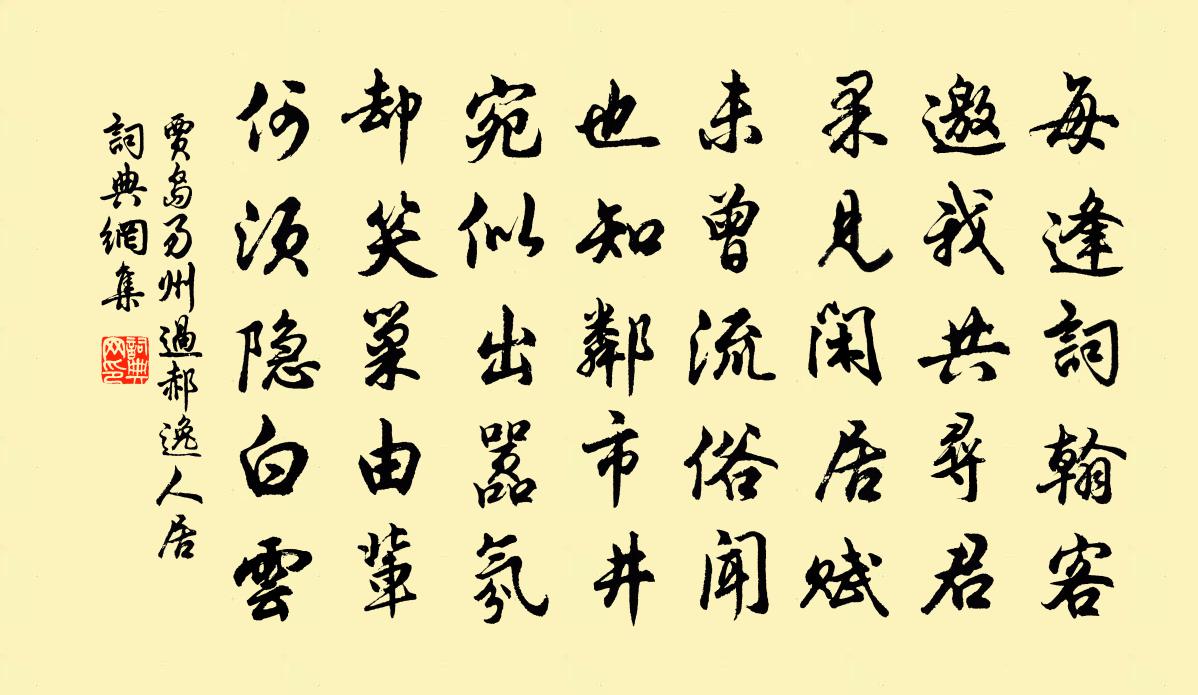 每逢詞翰客
邀我共尋君
果見閑居賦
未曾流俗聞
也知鄰市井
宛似出嚣氛
却笑巢由輩
何須隐白雲
賈島易州過郝逸人居
詞典網集
詞典网印